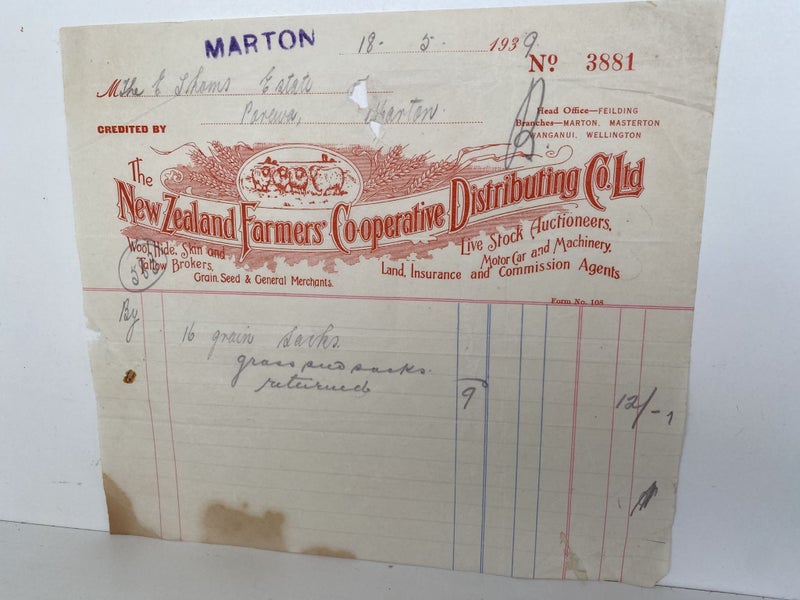 MARTON 18- 5. 1939.
No 3881
M The E Estate
Porewa, Marton.
Head Office—FEILDING
Branches—MARTON, MASTERTON
WANGANUI, WELLINGTON
CREDITED BY
The
New Zealand Farmers' Co-operative Distributing Co. Ltd
Wool, Hide, Skin and
Tallow Brokers,
Grain, Seed & General Merchants.
Live Stock Auctioneers,
Motor Car and Machinery,
Land, Insurance and Commission Agents
Form No. 108
By 16 grain sacks.
grass seed sacks
returned 9 12/-